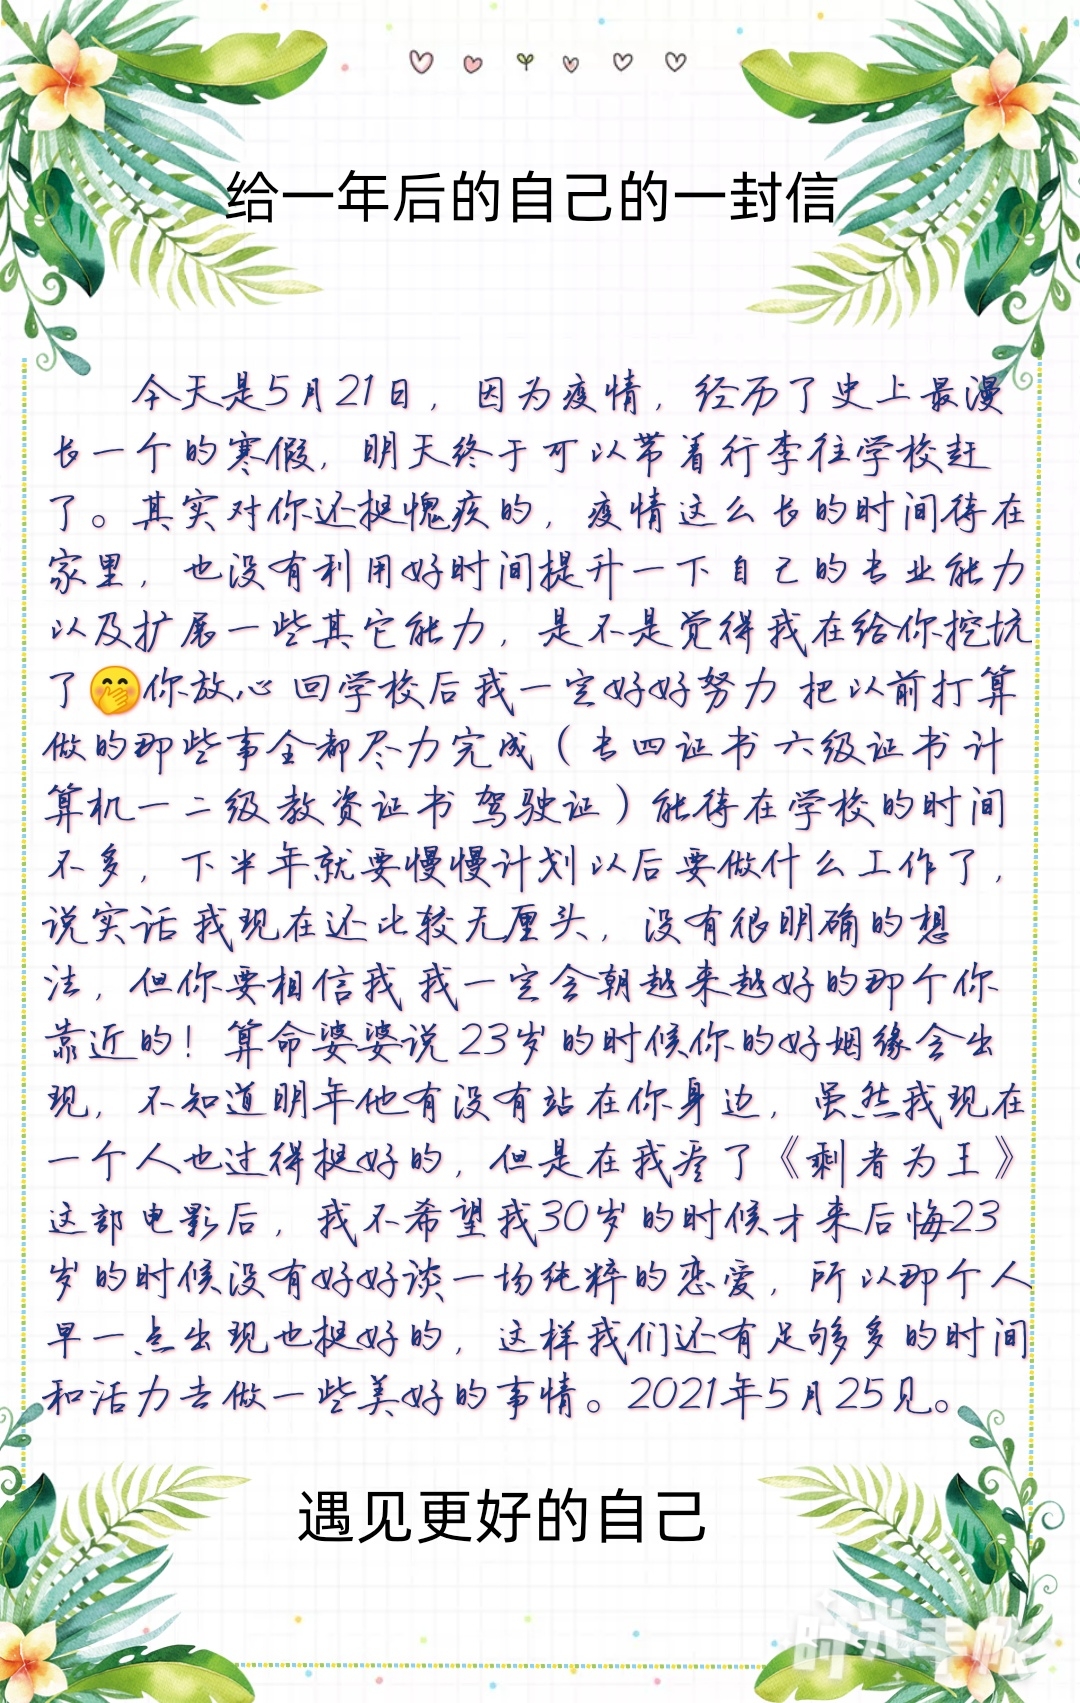 给一年后的自己的一封信
今天是5月21日，因为疫情，经历了史上最漫
长一个的寒假，明天终于可以带着行李往学校赶
了。其实对你还挺愧疚的，疫情这么长的时间待在
家里，也没有利用好时间提升一下自己的专业能力
以及扩展一些其它能力，是不是觉得我在给你挖坑
了🤭你放心 回学校后我一定好好努力 把以前打算
做的那些事全都尽力完成（专四证书 六级证书 计
算机一二级 教资证书 驾驶证）能待在学校的时间
不多，下半年就要慢慢计划以后要做什么工作了，
说实话 我现在还比较无厘头，没有很明确的想
法，但你要相信我 我一定会朝越来越好的那个你
靠近的！算命婆婆说 23岁的时候你的好姻缘会出
现，不知道明年他有没有站在你身边，虽然我现在
一个人也过得挺好的，但是在我看了《剩者为王》
这部电影后，我不希望我30岁的时候才来后悔23
岁的时候没有好好谈一场纯粹的恋爱，所以那个人
早一点出现也挺好的，这样我们还有足够多的时间
和活力去做一些美好的事情。2021年5月25见。
遇见更好的自己
时光手帐